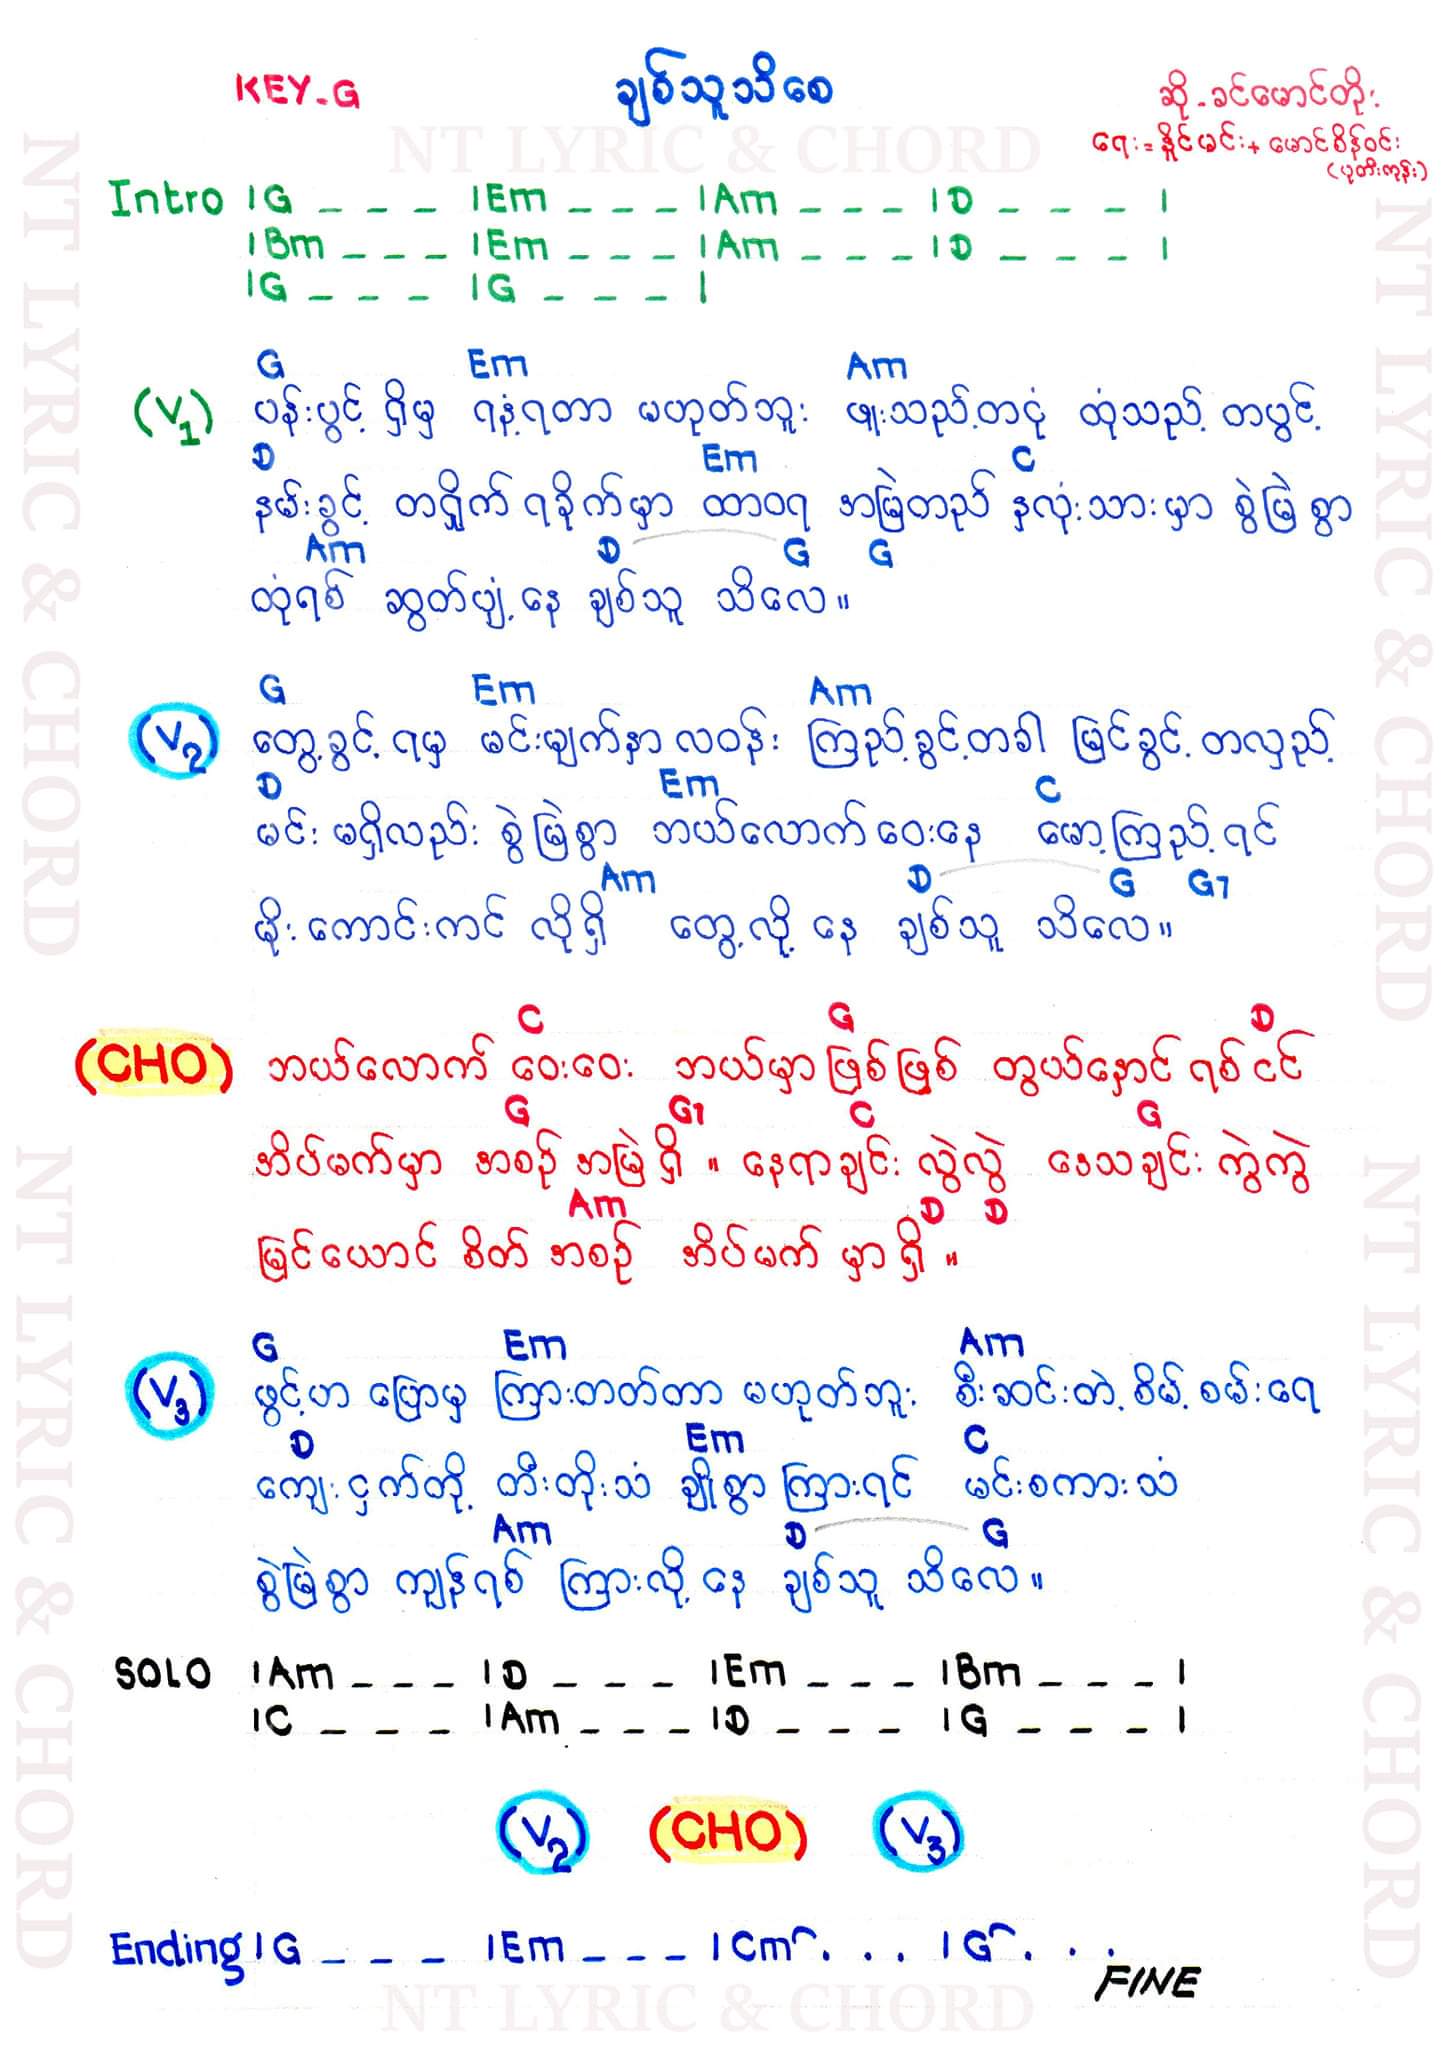 KEY-G
ချစ်သူသိစေ
ဆို-ခင်မောင်တိုး
ရေး=နိုင်မင်း+မောင်စိန်ဝင်း
(ပုတီးကုန်း)
NT LYRIC & CHORD
Intro |G _ _ _ |Em _ _ _ |Am _ _ _ |D _ _ _ |
|Bm _ _ _ |Em _ _ _ |Am _ _ _ |D _ _ _ |
|G _ _ _ |G _ _ _ |
G Em Am
(V1) ပန်းပွင့် ရှိမှ ရနံ့ရတာ မဟုတ်ဘူး ဖူးသည့်တငုံ ထုံသည့် တပွင့်
D Em C
နမ်းခွင့် တရှိုက် ရခိုက်မှာ ထာဝရ အမြဲတည် နှလုံးသားမှာ စွဲမြဲစွာ
Am D G G
ထုံရစ် ဆွတ်ပျံ့နေ ချစ်သူ သိလေ။
G Em Am
(V2) တွေ့ခွင့်ရမှ မင်းမျက်နှာလဝန်း ကြည့်ခွင့်တခါ မြင်ခွင့် တလှည့်
D Em C
မင်း မရှိလည်း စွဲမြဲစွာ ဘယ်လောက်ဝေးနေ မော့ကြည့်ရင်
Am D G G7
မိုးကောင်းကင် လိုရှိ တွေ့လို့နေ ချစ်သူ သိလေ။
C G D
(CHO) ဘယ်လောက် ဝေးဝေး ဘယ်မှာဖြစ်ဖြစ် တွယ်နှောင်ရစ်ငင်
G G7 C G
အိပ်မက်မှာ အစဉ် အမြဲရှိ ။ နေရာချင်း လွဲလွဲ ဒေသချင်း ကွဲကွဲ
Am D D
မြင်ယောင်စိတ် အစဉ် အိပ်မက် မှာရှိ ။
G Em Am
(V3) ဖွင့်ဟ ပြောမှ ကြားတတ်တာ မဟုတ်ဘူး စီးဆင်းတဲ့ စိမ့်စမ်းရေ
D Em C
ကျေးငှက်တို့ တီးတိုးသံ ချိုစွာ ကြားရင် မင်းစကားသံ
Am D G
စွဲမြဲစွာ ကျန်ရစ် ကြားလို့နေ ချစ်သူ သိလေ။
SOLO |Am _ _ _ |D _ _ _ |Em _ _ _ |Bm _ _ _ |
|C _ _ _ |Am _ _ _ |D _ _ _ |G _ _ _ |
(V2) (CHO) (V3)
Ending |G _ _ _ |Em _ _ _ |Cm . . . |G . . .
FINE
NT LYRIC & CHORD
NT LYRIC & CHORD
NT LYRIC & CHORD
NT LYRIC & CHORD
NT LYRIC & CHORD